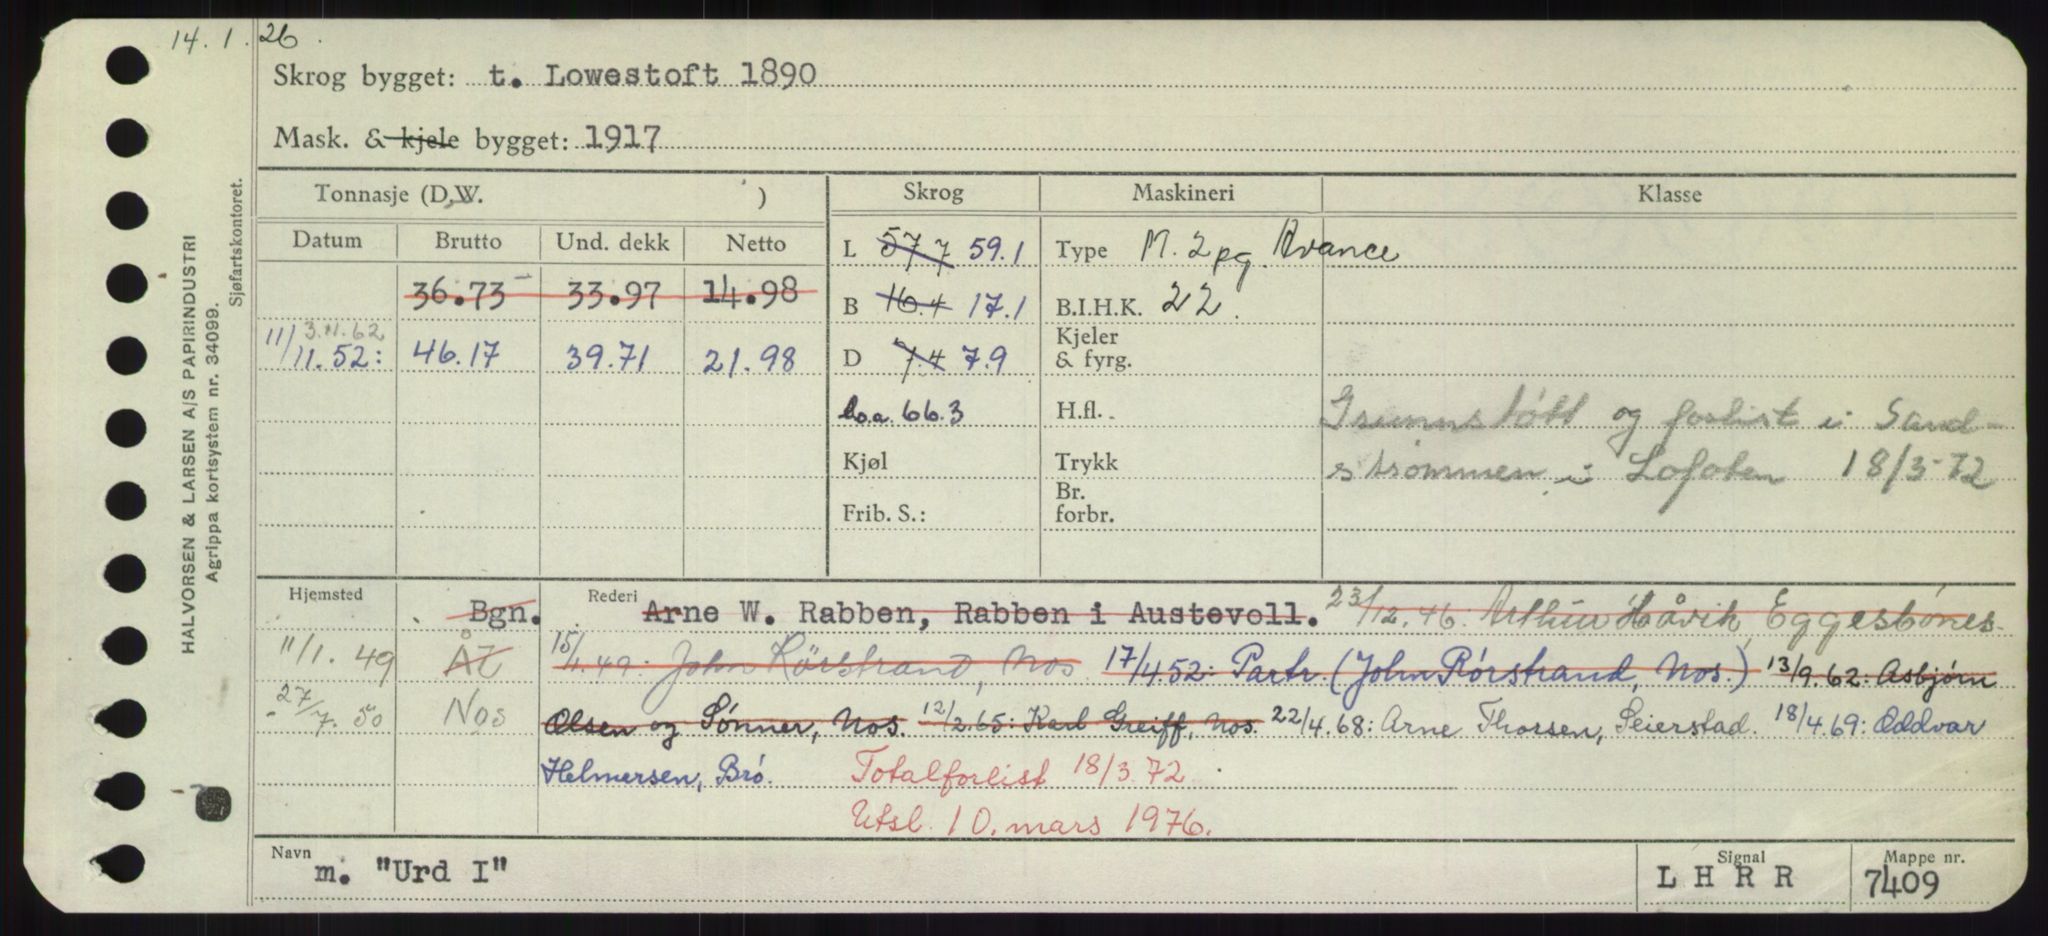 14.1.26.
Skrog bygget: t. Lowestoft 1890
Mask. & kjele bygget: 1917
HALVORSEN & LARSEN A/S PAPIRINDUSTRI
Agrippa kortsystem nr. 34099.
Sjøfartskontoret.
Tonnasje (D.W. ) Skrog Maskineri Klasse
Datum Brutto Und. dekk Netto L 57.7 59.1 Type M. 2 pg. Avance
36.73 33.97 14.98 B 16.4 17.1 B.I.H.K. 22.
3.11.62
11/11.52: 46.17 39.71 21.98 D 7.4 7.9 Kjeler & fyrg.
Lo.a. 66.3 H.fl. Grunnstött og forlist i Sand-
Kjøl Trykk strömmen i Lofoten 18/3-72
Frib. S.: Br. forbr.
Hjemsted Bgn. Rederi Arne W. Rabben, Rabben i Austevoll. 23/12.46: Arthur Håvik, Eggesbönes.
11/1.49 ÅL 15/1.49: John Rörstrand, Nos 17/4 52: Partr. (John Rórstrand, Nos.) 13/9.62: Asbjørn
27/7.50 Nos Olsen og Sønner, Nos. 12/2.65: Karl Greiff, Nos. 22/4.68: Arne Thorsen, Seierstad. 18/4.69: Oddvar
Helmersen, Brö. Totalforlist 18/3.72
Utsl. 10. mars 1976.
Navn m. "Urd I" Signal L H R R Mappe nr. 7409